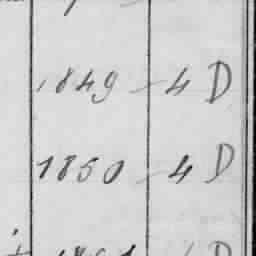 1849 - 4 D
1850 - 4 D